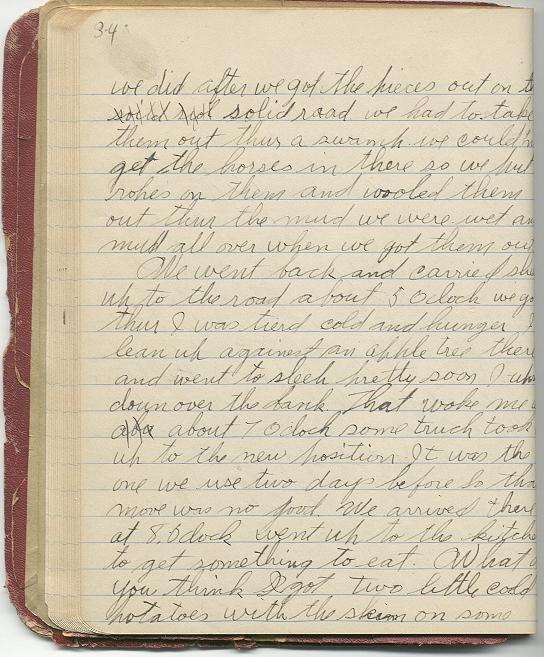 34
we did after we got the pieces out on
solid road we had to take
them out thur a swamp we could'n
get the horses in there so we put
ropes on them and wooled them
out thur the mud we were wet an
mud all over when we got them out
We went back and carried she
up to the road about 5 Oclock we go
thur I was tierd cold and hunger, I
lean up against an apple tree there
and went to sleep pretty soon I
down over the bank. That woke me
about 7 Oclock some truck took
up to the new position It was the
one we use two days before so tha
move was no good. We arrived there
at 8.Oclock went up to the kitche
to get something to eat. What
you think I got two little cold
potatoes with the skim on some